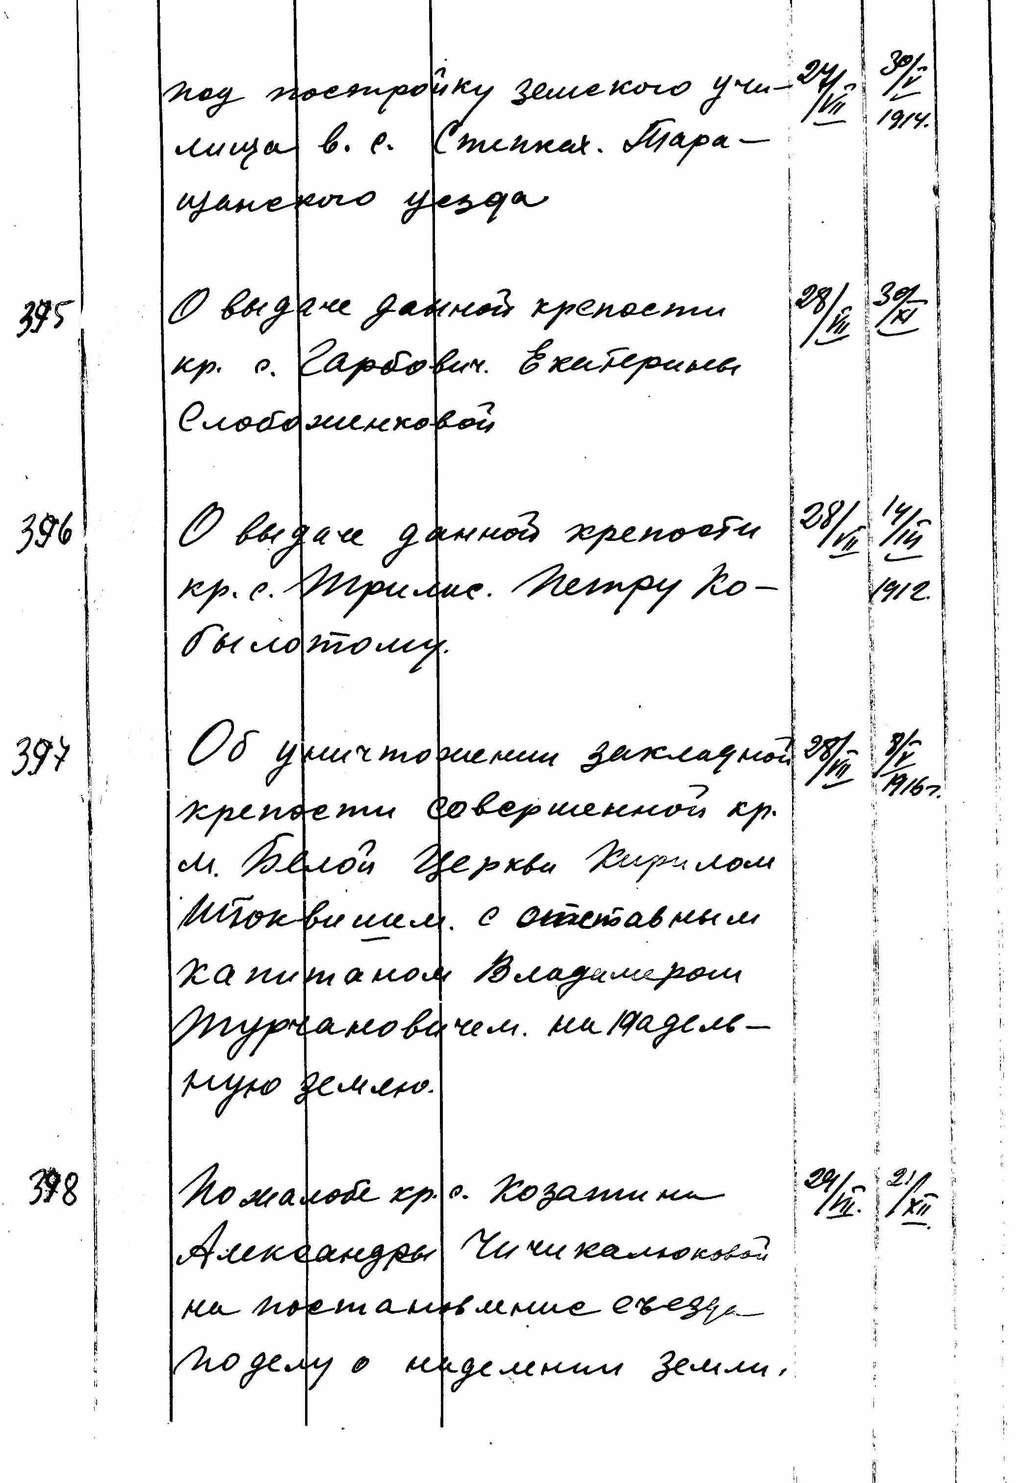 под постройку земского учи- 27/VII 30/V
лища в. с. Степках. Тара- 1914.
щанского уезда
395 О выдаче данной крепости 28/VII 30/XI
кр. с. Гарбович. Екатерины
Слобоженковой
396 О выдаче данной крепости 28/VII 14/III
кр. с. Трилис. Петру Ко- 1912.
былотому.
397 Об уничтожении закладной 28/VII 8/V
крепости совершенной кр. 1916 г.
м. Белой Церкви Кирилом
с отставным
капитаном Владимером
Турчановичем. на надель-
ную землю.
398 По жалобе кр. с. Козатина 29/VII. 21/XII
Александры Чичикалюковой
на постановление съезда
по делу о наделении земли.